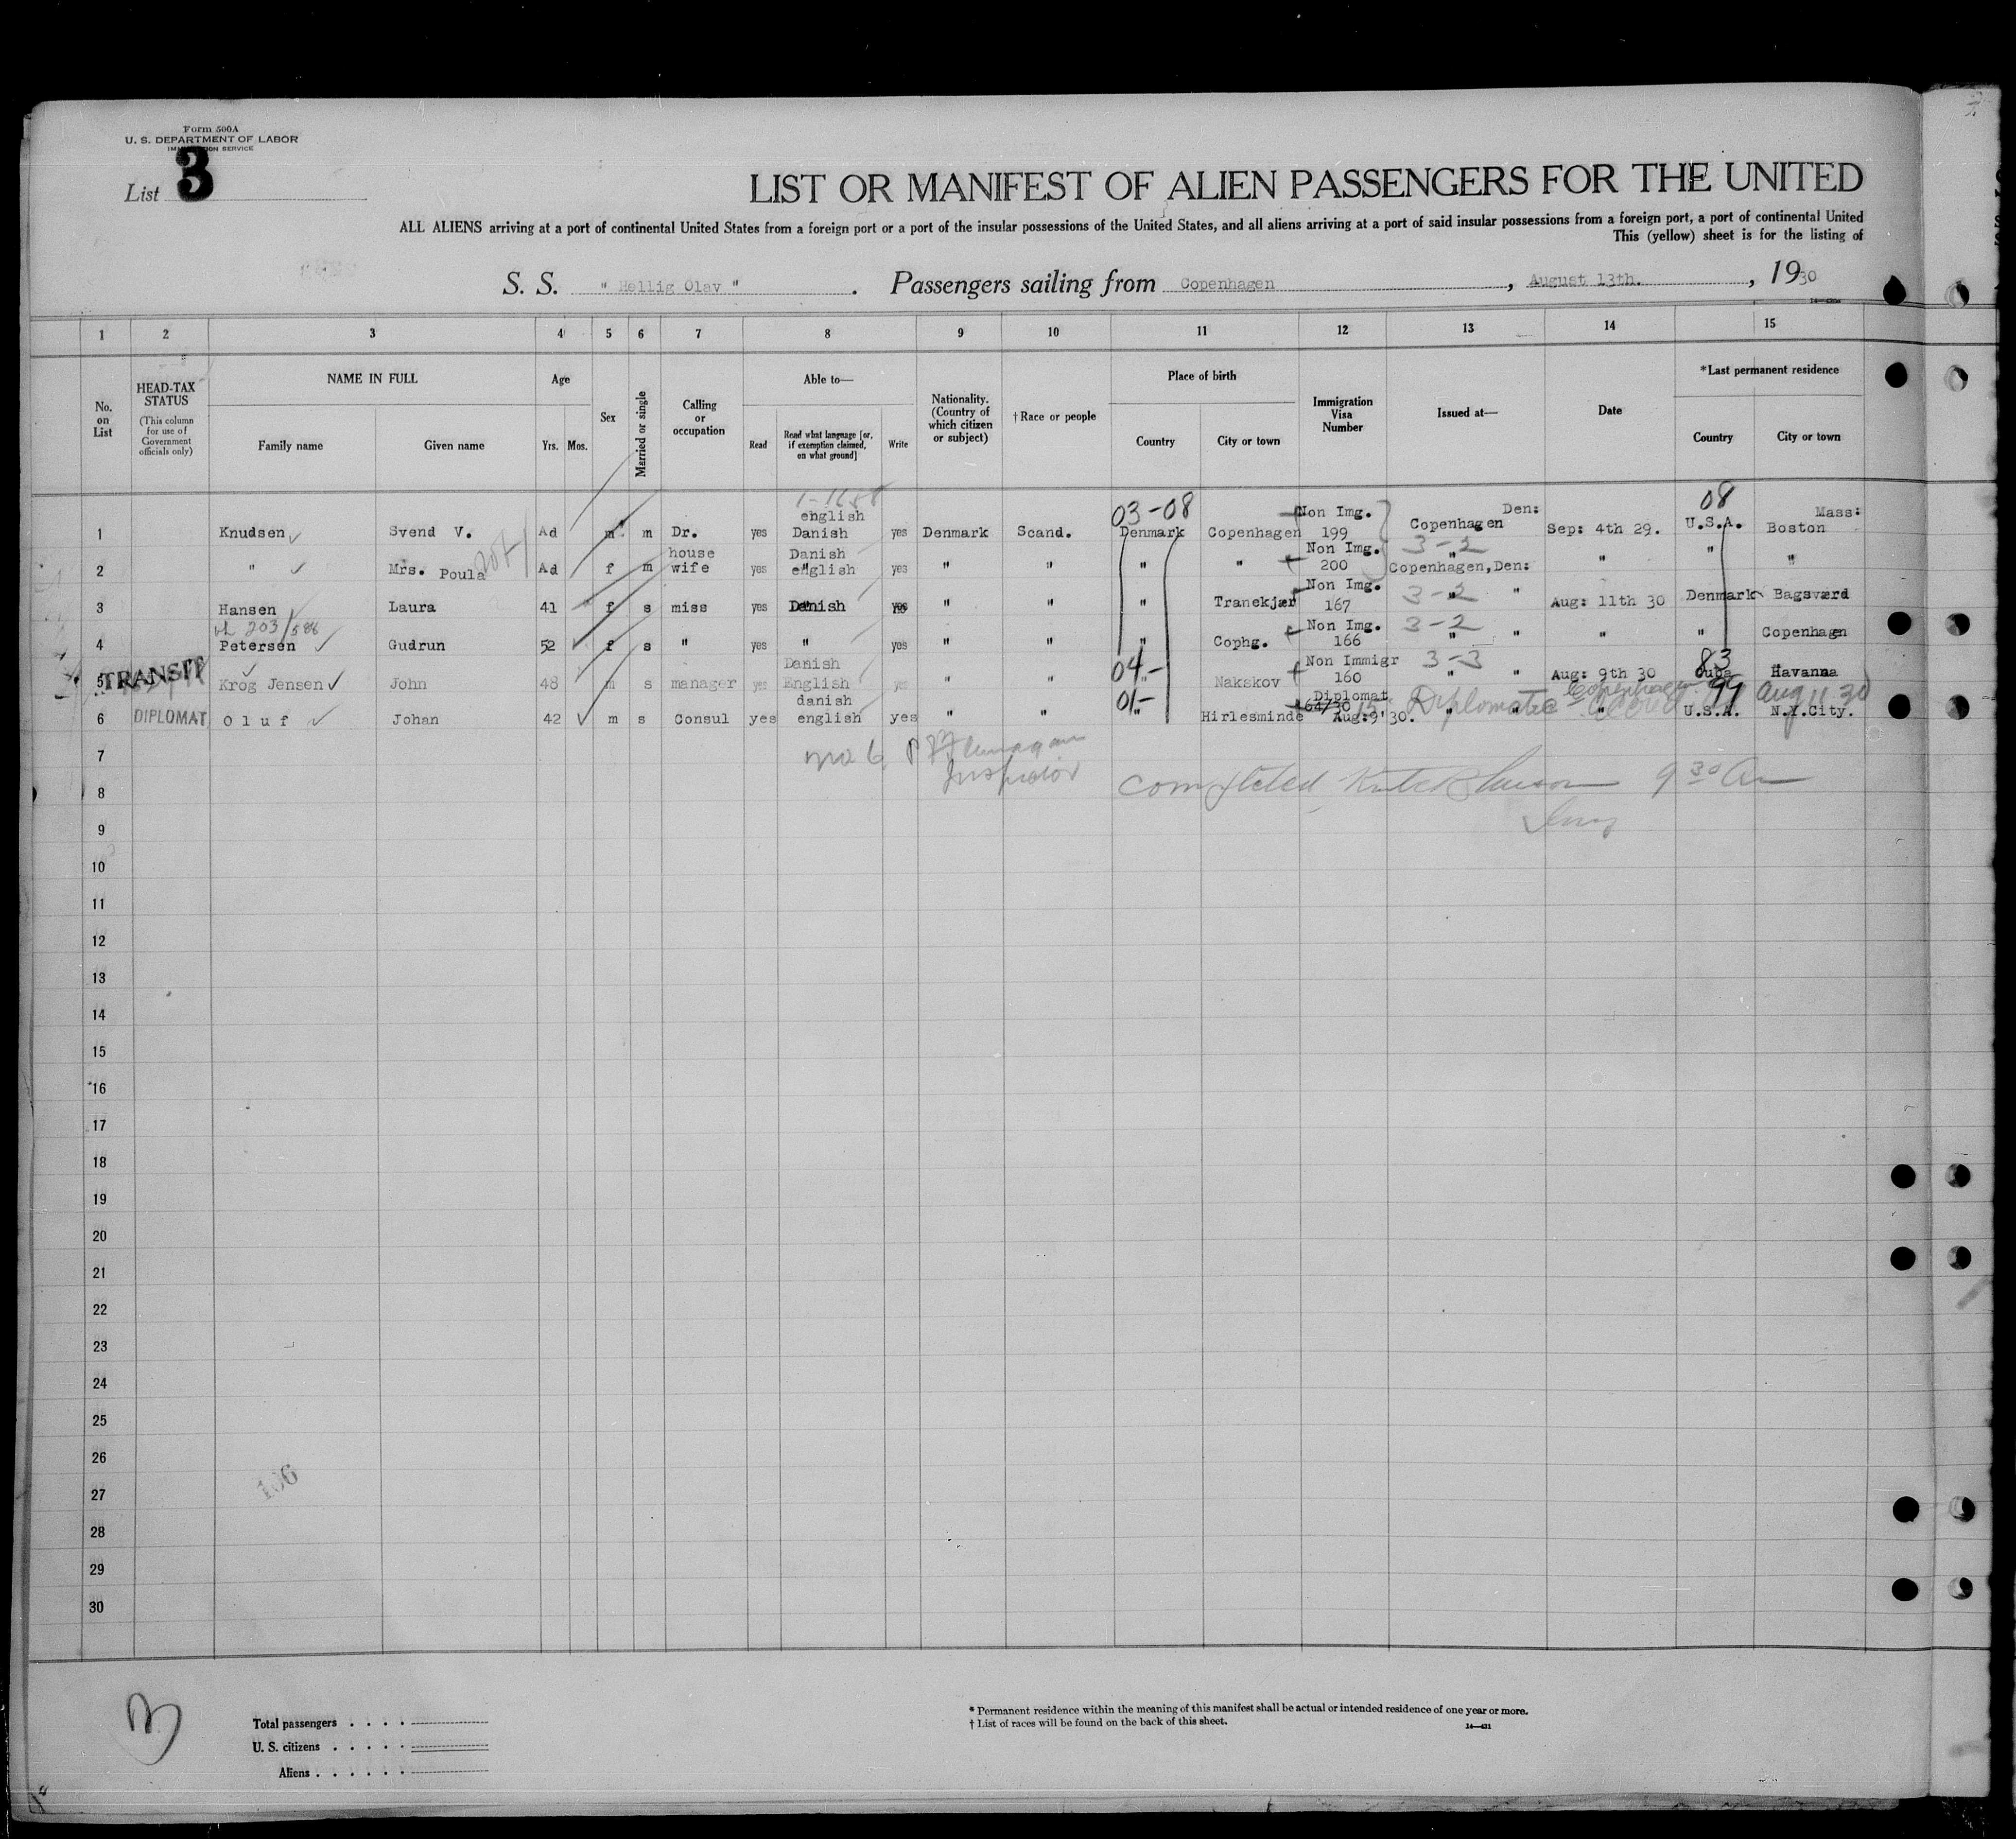 Form 500A
U. S. DEPARTMENT OF LABOR
IMMIGRATION SERVICE
List 3
LIST OR MANIFEST OF ALIEN PASSENGERS FOR THE UNITED
ALL ALIENS arriving at a port of continental United States from a foreign port or a port of the insular possessions of the United States, and all aliens arriving at a port of said insular possessions from a foreign port, a port of continental United
This (yellow) sheet is for the listing of
S. S. " Hellig Olav " . Passengers sailing from Copenhagen , August 13th. , 1930
1 2 3 4 5 6 7 8 9 10 11 12 13 14 15
No. on List
HEAD-TAX STATUS (This column for use of Government officials only)
NAME IN FULL
Family name Given name
Age
Yrs. Mos.
Sex
Married or single
Calling or occupation
Able to—
Read
Read what language [or, if exemption claimed, on what ground]
Write
Nationality. (Country of which citizen or subject)
† Race or people
Place of birth
Country City or town
Immigration Visa Number
Issued at—
Date
*Last permanent residence
Country City or town
1-1688
03-08 08
english Non Img. Den: Mass:
1 Knudsen Svend V. Ad m m Dr. yes Danish yes Denmark Scand. Denmark Copenhagen 199 Copenhagen Sep: 4th 29. U.S.A. Boston
house Danish Non Img. 3-2
2 " Mrs. Poula Ad f m wife yes english yes " " " " 200 Copenhagen, Den: " " "
Non Img. 3-2
3 Hansen Laura 41 f s miss yes Danish yes " " " Tranekjær 167 " " Aug: 11th 30 Denmark Bagsværd
203/586 Non Img. 3-2
4 Petersen Gudrun 52 f s " yes " yes " " " Cophg. 166 " " " " Copenhagen
TRANSIT Danish 04- Non Immigr 3-3 83
5 Krog Jensen John 48 m s manager yes English yes " " " Nakskov 160 " " Aug: 9th 30 Cuba Havanna
danish 01- Diplomat Diplomatic Copenhagen 99 Aug 11 30
6 DIPLOMAT Oluf Johan 42 m s Consul yes english yes " " " Hirlesminde 164/30 Aug:9'30. " " " U.S.A. N.Y.City.
7 no 6
Inspector
8 completed 9 30 am
9
10
11
12
13
14
15
16
17
18
19
20
21
22
23
24
25
26
106
27
28
29
30
3
Total passengers . . . .
U. S. citizens . . . . .
Aliens . . . . . .
* Permanent residence within the meaning of this manifest shall be actual or intended residence of one year or more.
† List of races will be found on the back of this sheet.